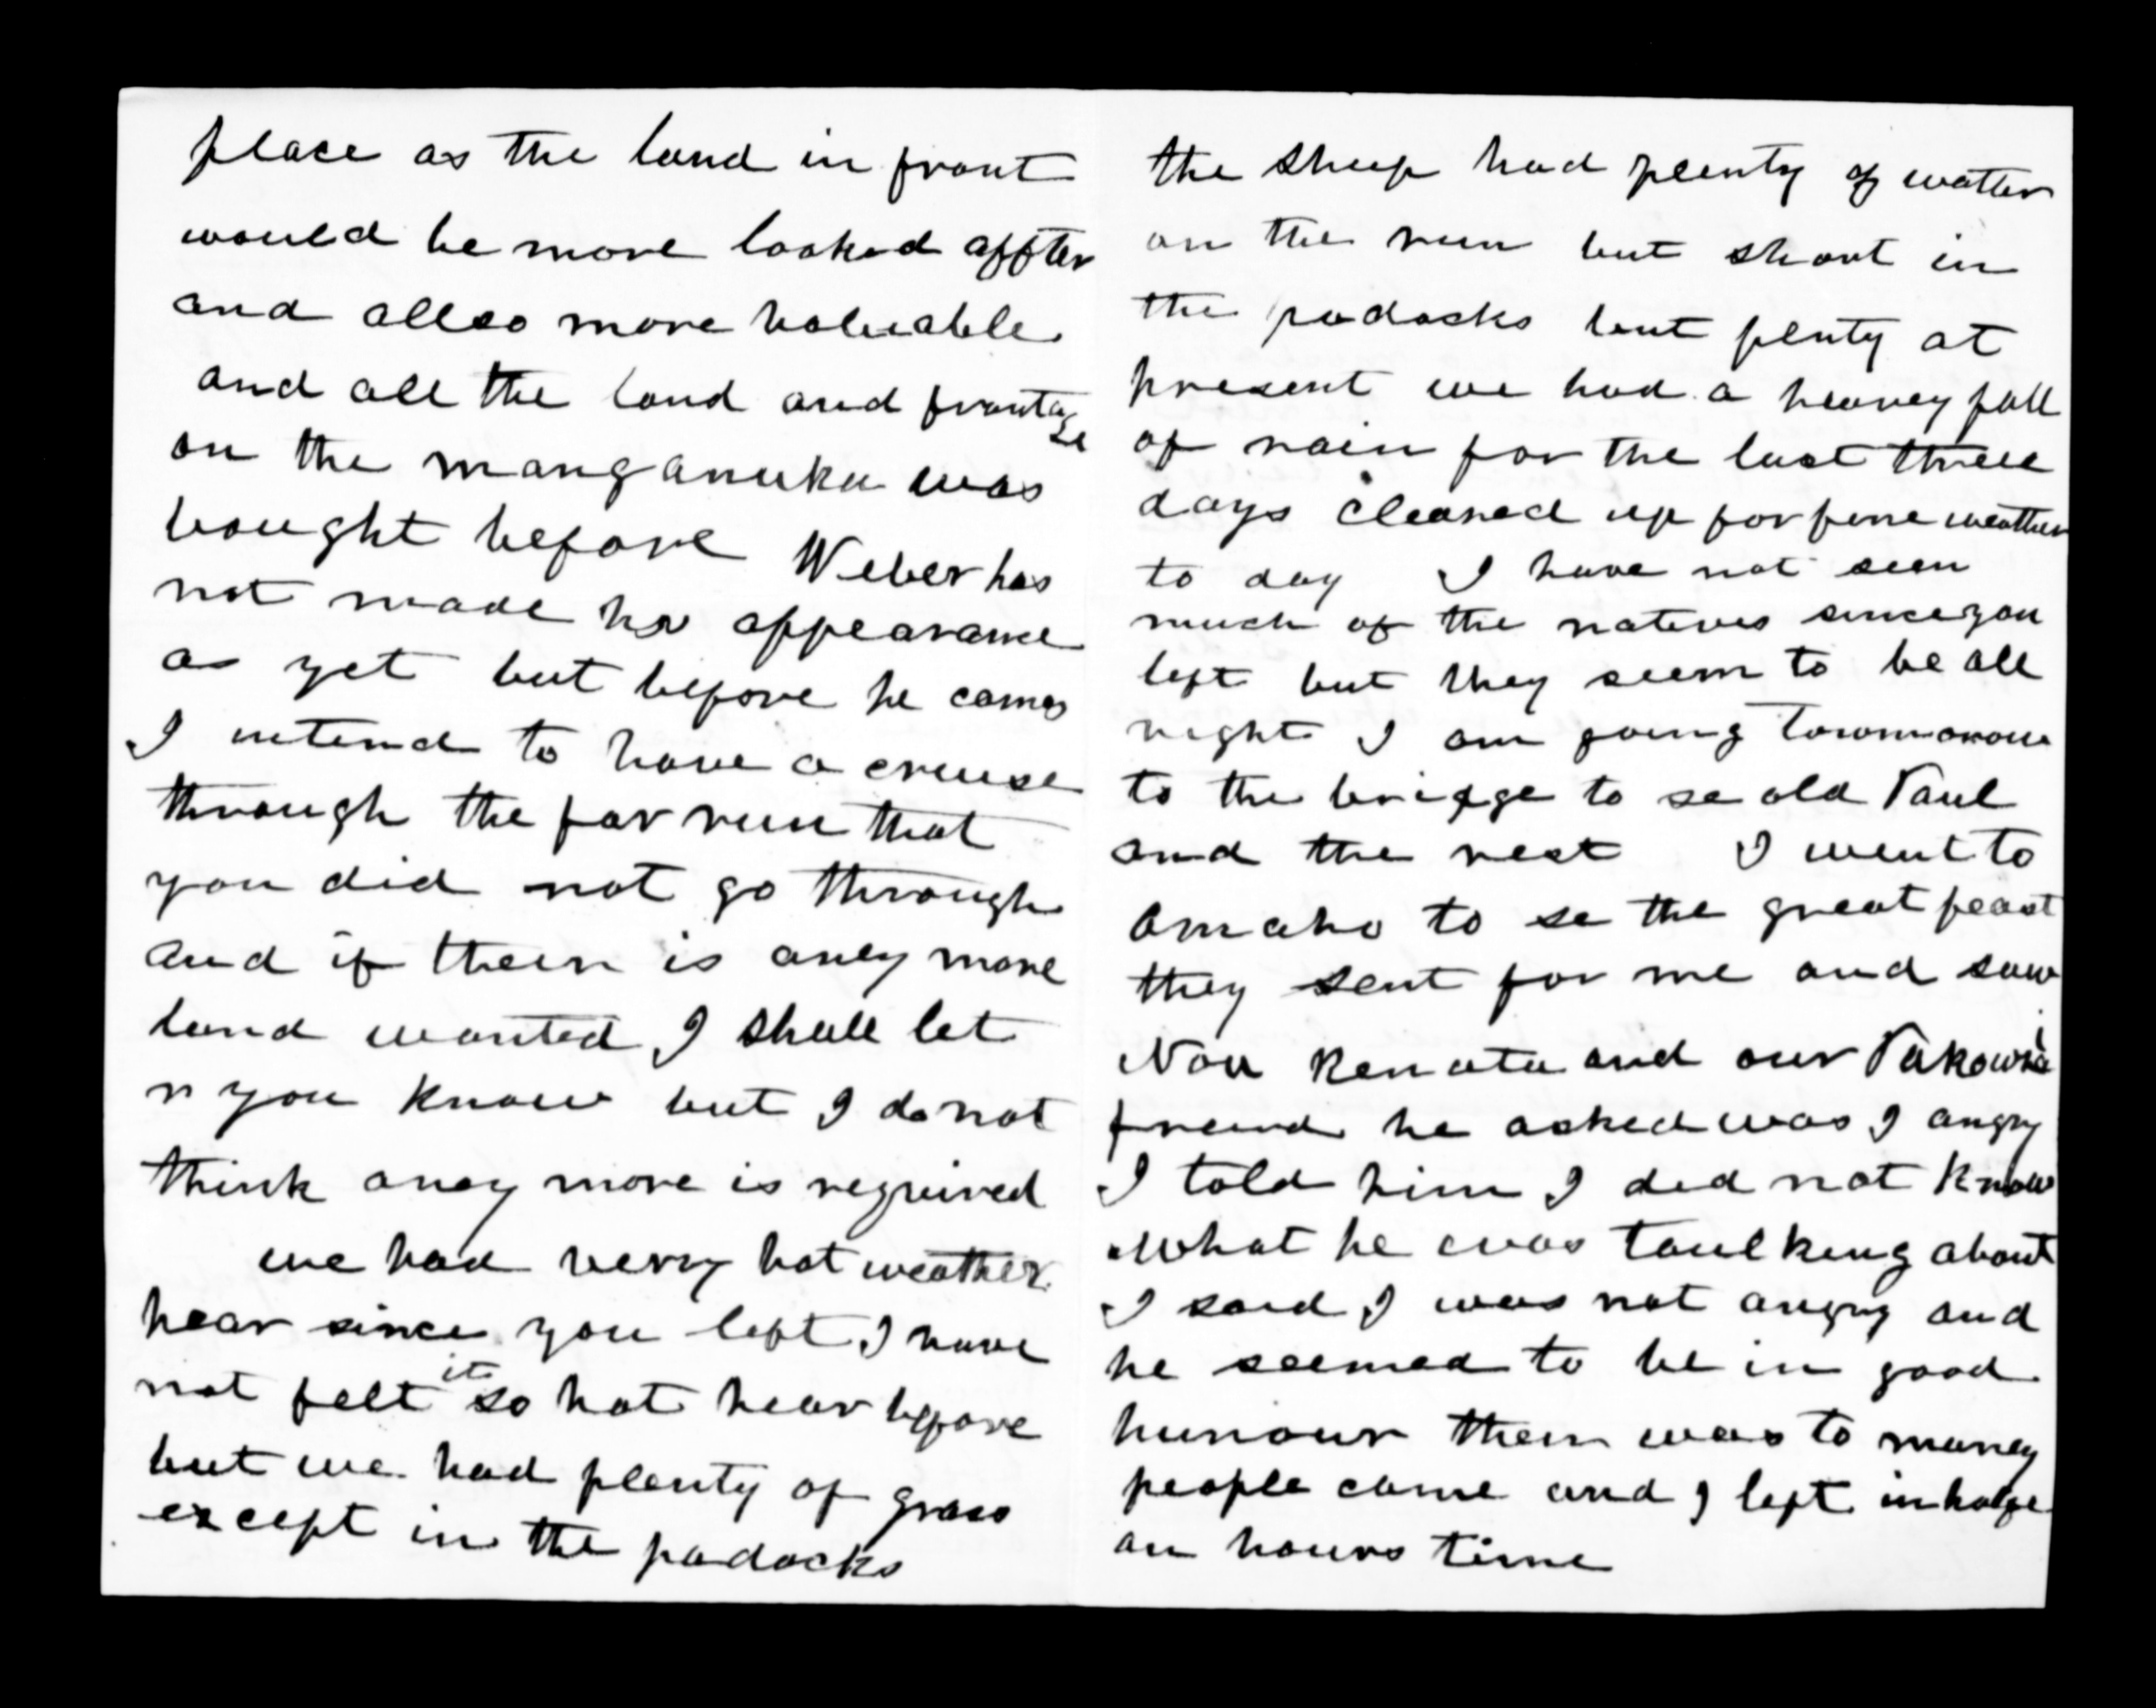 place as the land in front
would be more looked affter
and allso more valuable
and all the land and frontage
on the manganuka was
bought before Weber has
not made his appearance
as yet but before he comes
I intend to have a cruise
through the far run that
you did not go through
and if their is aney more
land wanted I shall let
you know but I do not
think aney more is required
we had verry hot weather
hear since you left I have
not felt it so hot hear before
but we had plenty of grass
except in the padocks
the sheep had plenty of watter
on the run but short in
the padocks but plenty at
present we had a heavey fall
of rain for the last three
days cleared up for fine weather
to day I have not seen
much of the natives since you
left but they seem to be all
right I am going towmorow
to the bridge to se old Paul
and the rest I went to
Omaho to se the great feast
they sent for me and saw
Noa Renata and our Pakowhi
freind he asked was I angry
I told him I did not know
what he was taulking about
I said I was not angry and
he seemed to be in good
humour their was to maney
people came and I left in halfe
an hours time